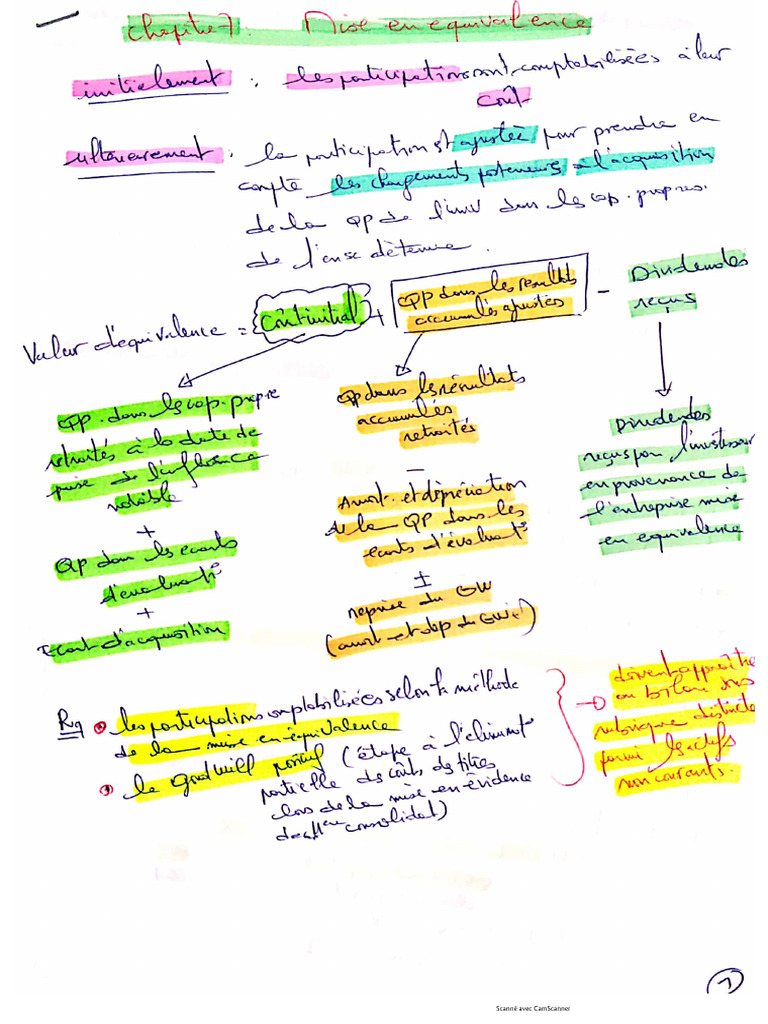 Chapitre 7. Mise en equivalence
initialement : les participations sont comptabilisées à leur
coût
ultérieurement : la participation est ajustée pour prendre en
compte les changements posterieurs à l'acquisition
de la QP de l'inv dans les cap. propres
de l'ense détenue.
Valeur d'équivalence = Coût initial + QP dans les résultats accumulés ajustés - Dividendes reçus
QP. dans les cap. propre
retraités à la date de
prise de l'influence
notable
+
QP dans les ecarts
d'évaluat°
+
Ecart d'acquisition
QP dans les résultats
accumulés
retraités
-
Amort. et dépréciation
de la QP dans les
ecarts d'évaluat°
±
reprise du GW
(amort et dep du GW+)
Dividendes
reçus par l'investisseur
en provenance de
l'entreprise mise
en equivalence
Rq • les participations comptabilisées selon la méthode
de la mise en équivalence
• le goodwill positif (étape à l'éliminat°
partielle des coûts des titres
lors de la mise en évidence
consolidat)
doivent apparaître
au bilan sous
rubrique distincte
parmi les actifs
non courants.
1
Scanné avec CamScanner